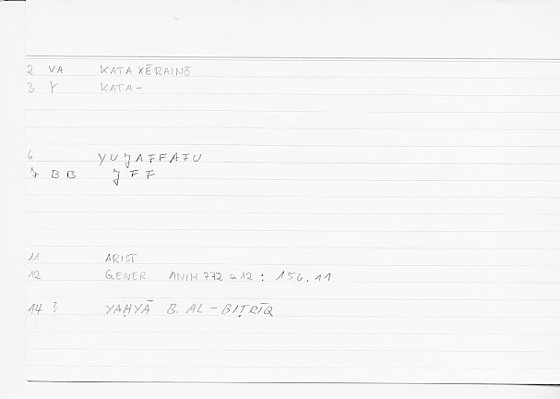 2 VA KATAXĒRAINŌ
3 Y KATA-
6 YUJAFFAFU
7 BB JFF
11 ARIST
12 GENER ANIM 772 a 12 : 156.11
14 YAḤYĀ B. AL-BIṬRĪQ